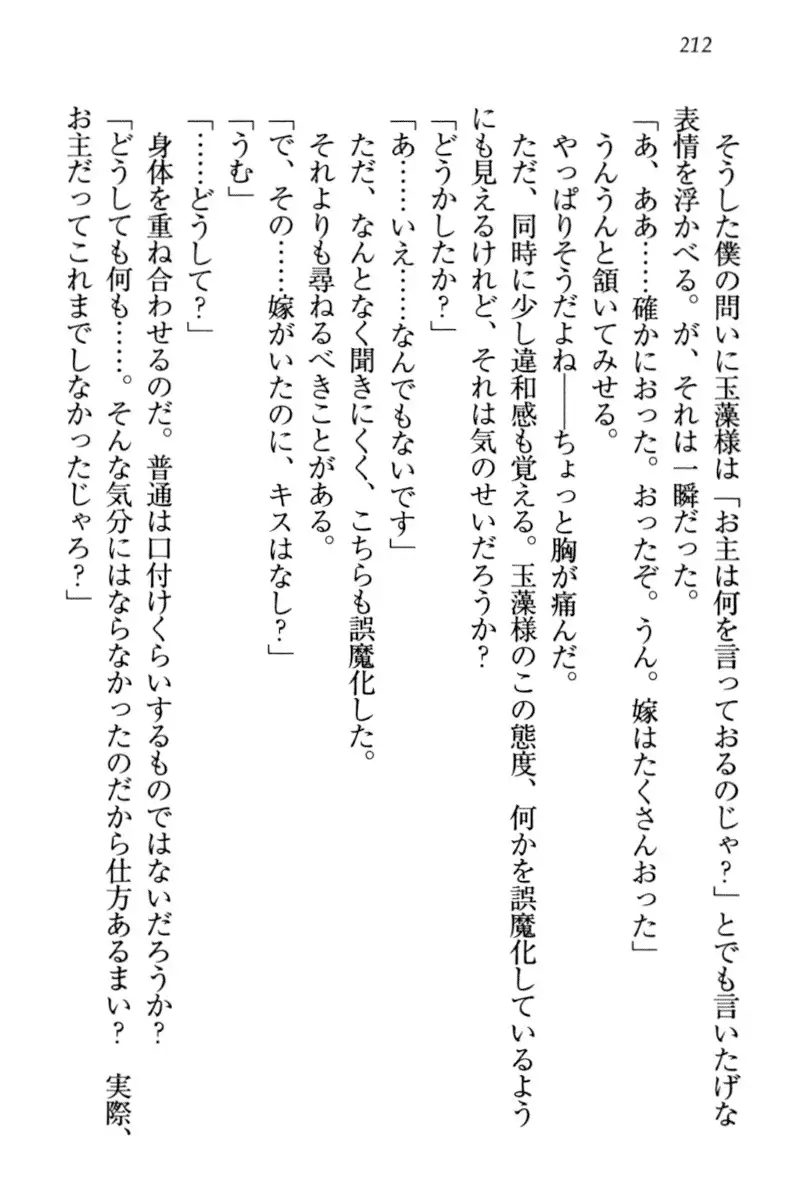 212
そうした僕の問いに玉藻様は「お主は何を言っておるのじゃ？」とでも言いたげな
表情を浮かべる。が、それは一瞬だった。
「あ、ああ……確かにおった。おったぞ。うん。嫁はたくさんおった」
うんうんと頷いてみせる。
やっぱりそうだよね――ちょっと胸が痛んだ。
ただ、同時に少し違和感も覚える。玉藻様のこの態度、何かを誤魔化しているよう
にも見えるけれど、それは気のせいだろうか？
「どうかしたか？」
「あ……いえ……なんでもないです」
ただ、なんとなく聞きにくく、こちらも誤魔化した。
それよりも尋ねるべきことがある。
「で、その……嫁がいたのに、キスはなし？」
「うむ」
「……どうして？」
身体を重ね合わせるのだ。普通は口付けくらいするものではないだろうか？
「どうしても何も……。そんな気分にはならなかったのだから仕方あるまい？　実際、
お主だってこれまでしなかったじゃろ？」